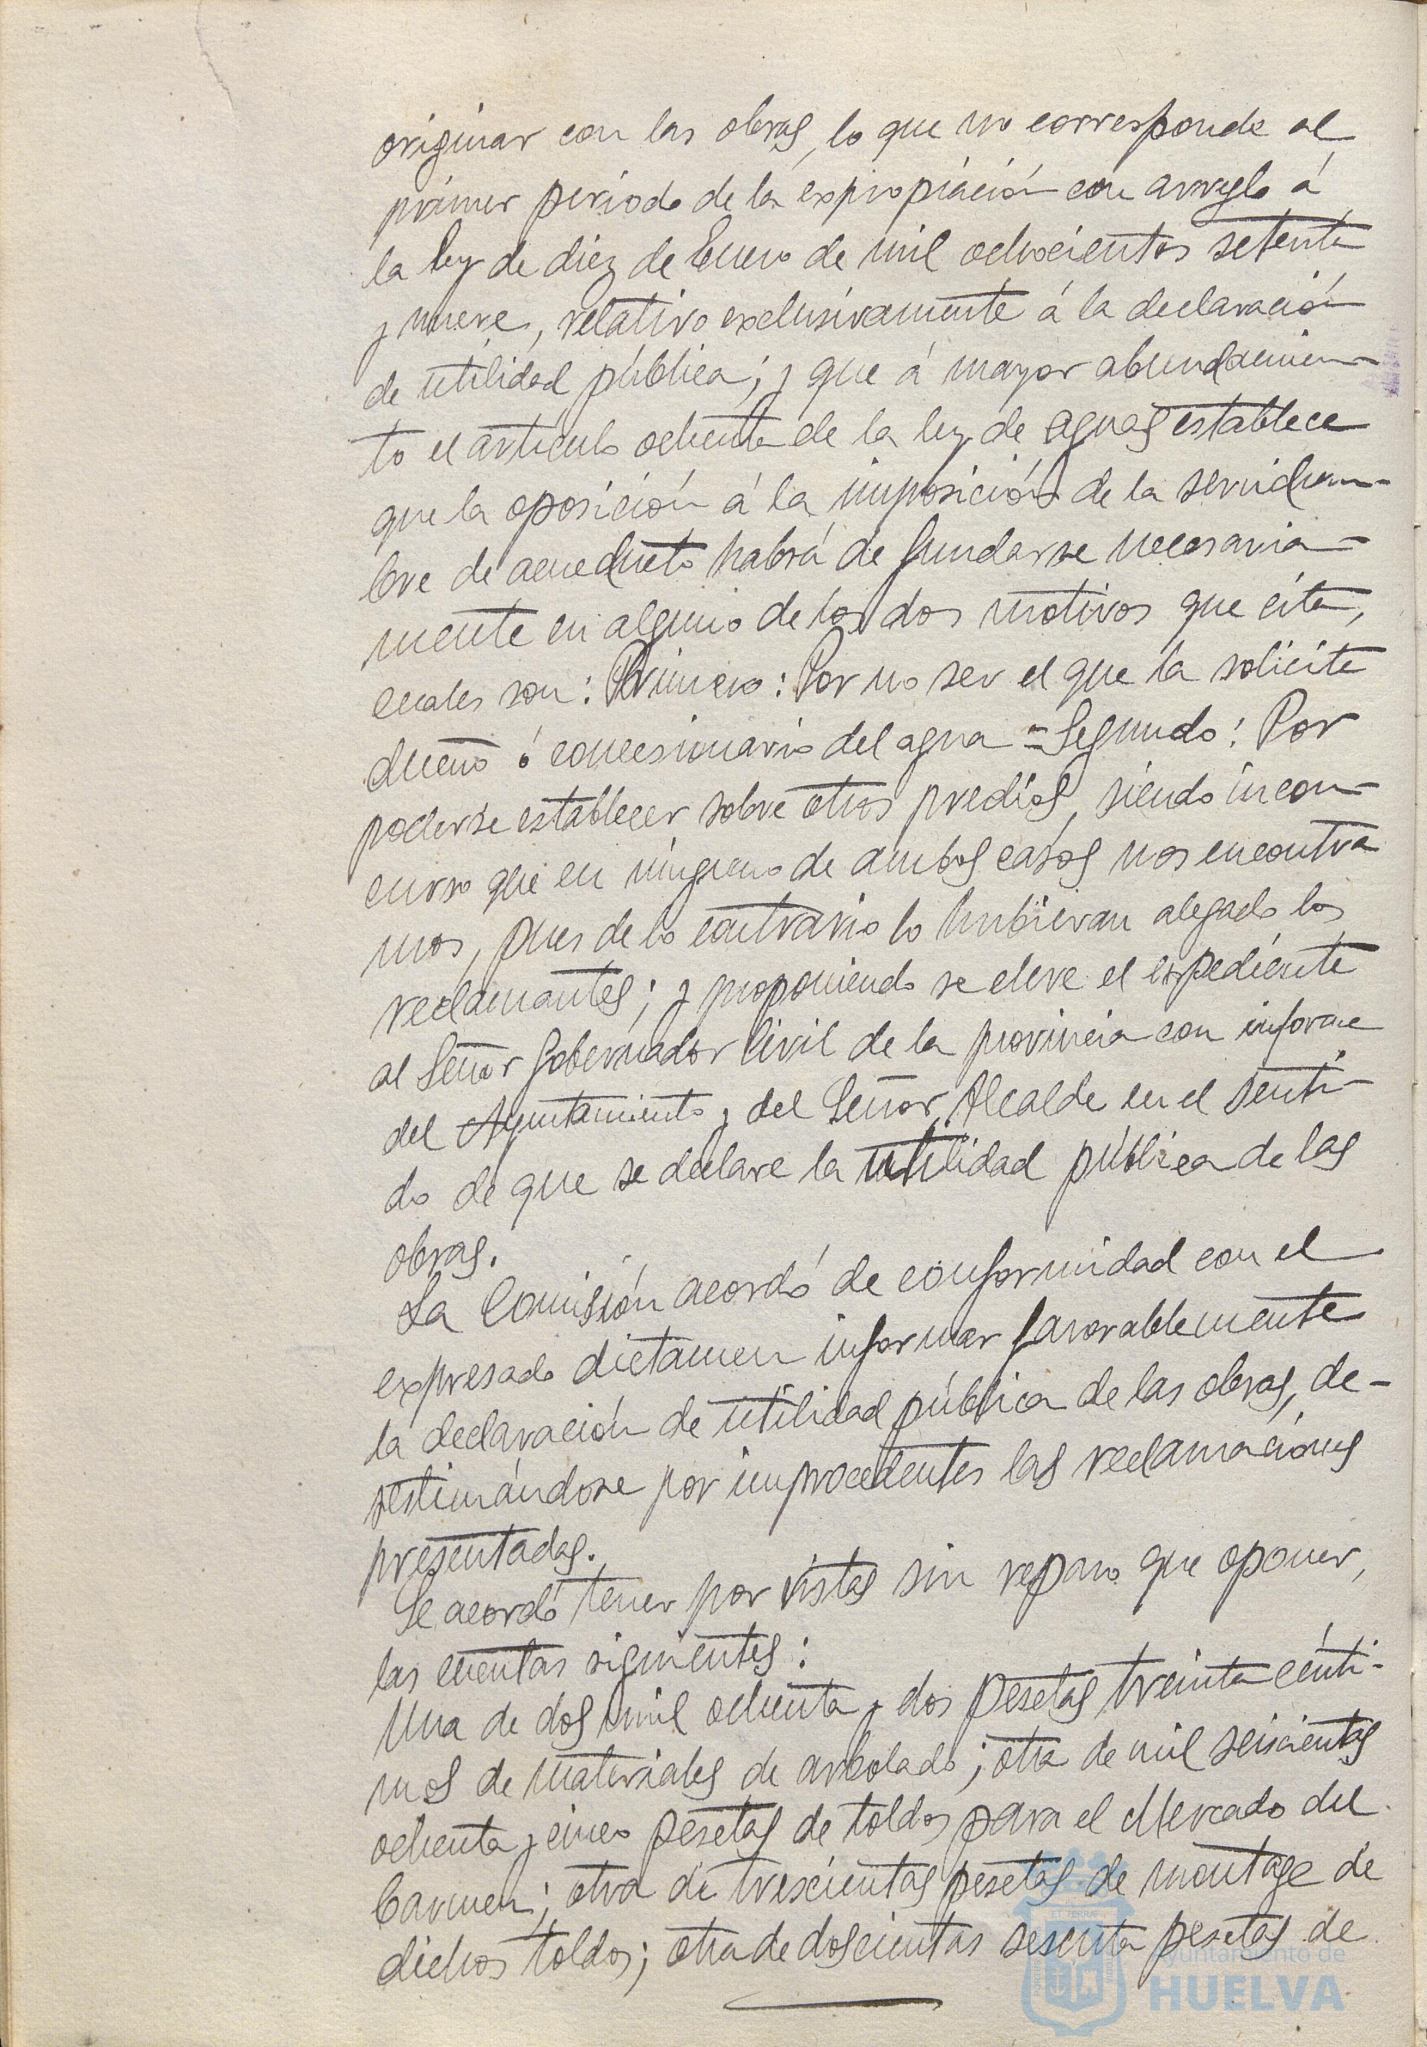 originar con las obras, lo que no corresponde al
primer periodo de la expropiación con arreglo á
la ley de diez de Enero de mil ochocientos setenta
y nueve, relativo exclusivamente á la declaración
de utilidad pública; y que á mayor abundamien-
to el artículo ochenta de la ley de aguas establece
que la oposición á la imposición de la servidum-
bre de acueducto habrá de fundarse necesaria-
mente en alguno de los dos motivos que cita,
cuales son: Primero: Por no ser el que la solicite
dueño ó concesionario del agua = Segundo: Por
poderse establecer sobre otros predios, siendo incon-
curso que en ninguno de ambos casos nos encontra
mos, pues de lo contrario lo hubieran alegado los
reclamantes; y proponiendo se eleve el expediente
al Señor Gobernador Civil de la provincia con informe
del Ayuntamiento y del Señor Alcalde en el senti-
do de que se declare la utilidad pública de las
obras.
La Comisión acordó de conformidad con el
expresado dictamen informar favorablemente
la declaración de utilidad pública de las obras, de-
sestimándose por improcedentes las reclamaciones
presentadas.
Se acordó tener por vistas sin reparo que oponer,
las cuentas siguientes:
Una de dos mil ochenta y dos pesetas treinta cénti-
mos de materiales de arbolado; otra de mil seiscientas
ochenta y cinco pesetas de toldos para el Mercado del
Carmen; otra de trescientas pesetas de montage de
dichos toldos; otra de doscientas sesenta pesetas de
Ayuntamiento de
HUELVA